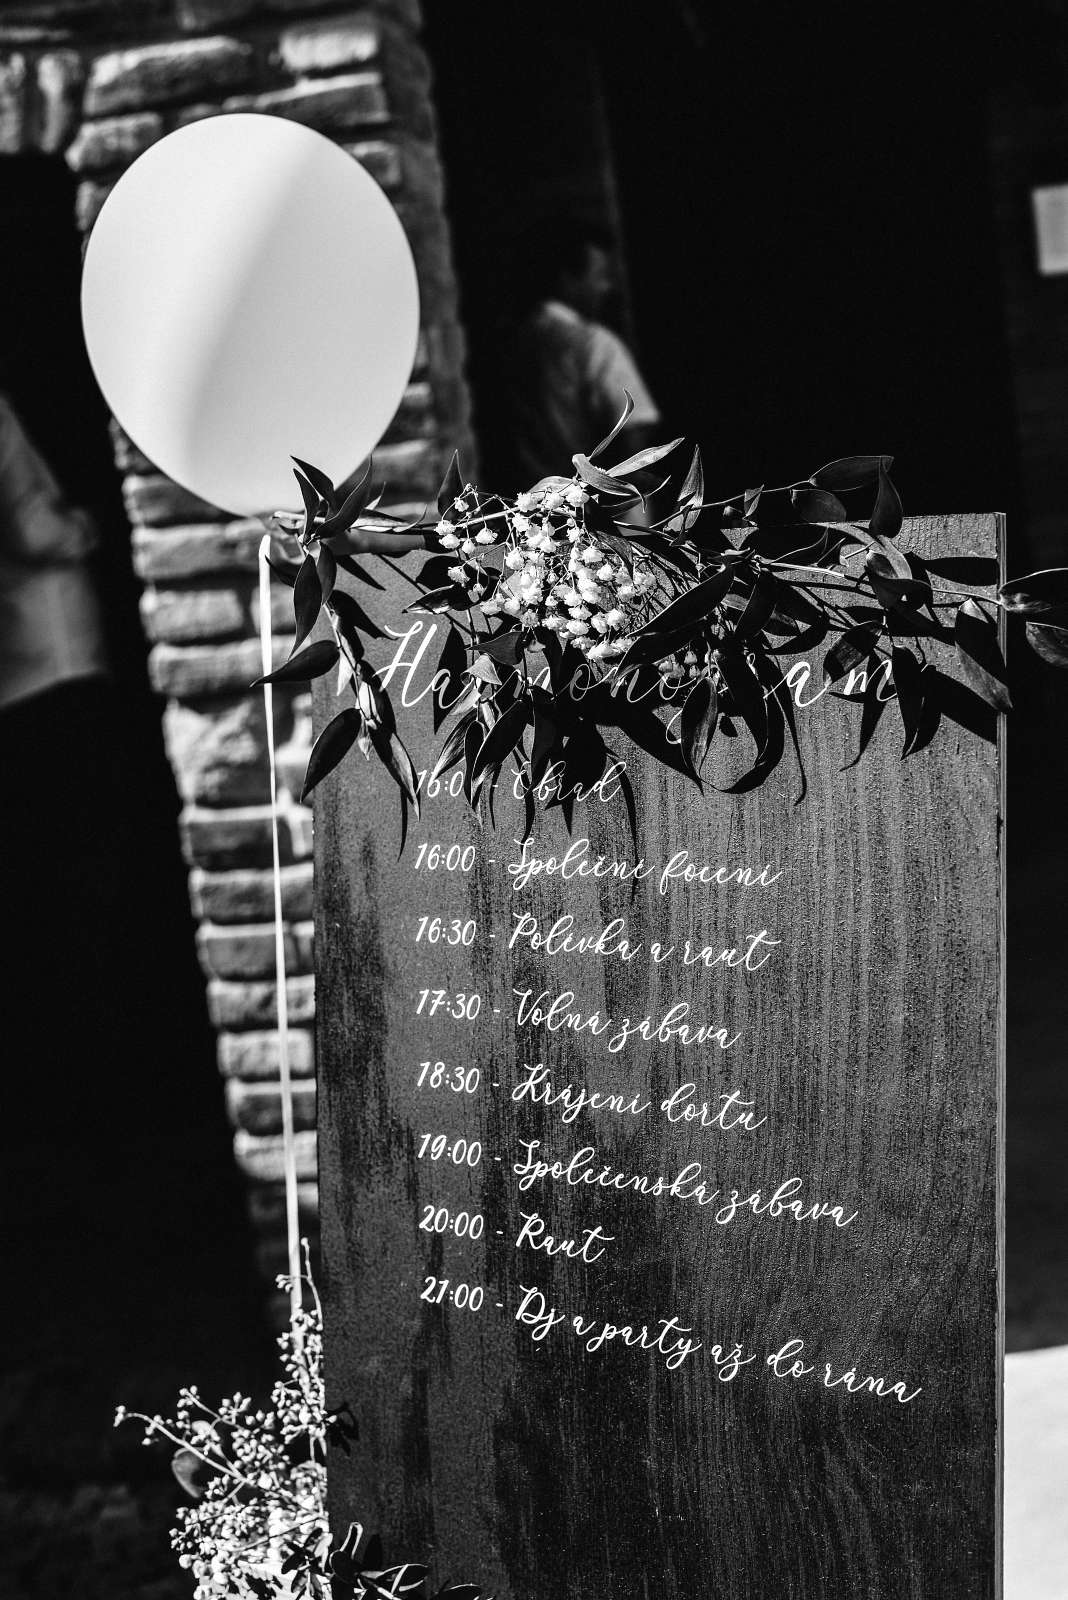 Harmonogram
15:00 - Obřad
16:00 - Společné focení
16:30 - Polévka a raut
17:30 - Volná zábava
18:30 - Krájení dortu
19:00 - Společenská zábava
20:00 - Raut
21:00 - Dj a party až do rána